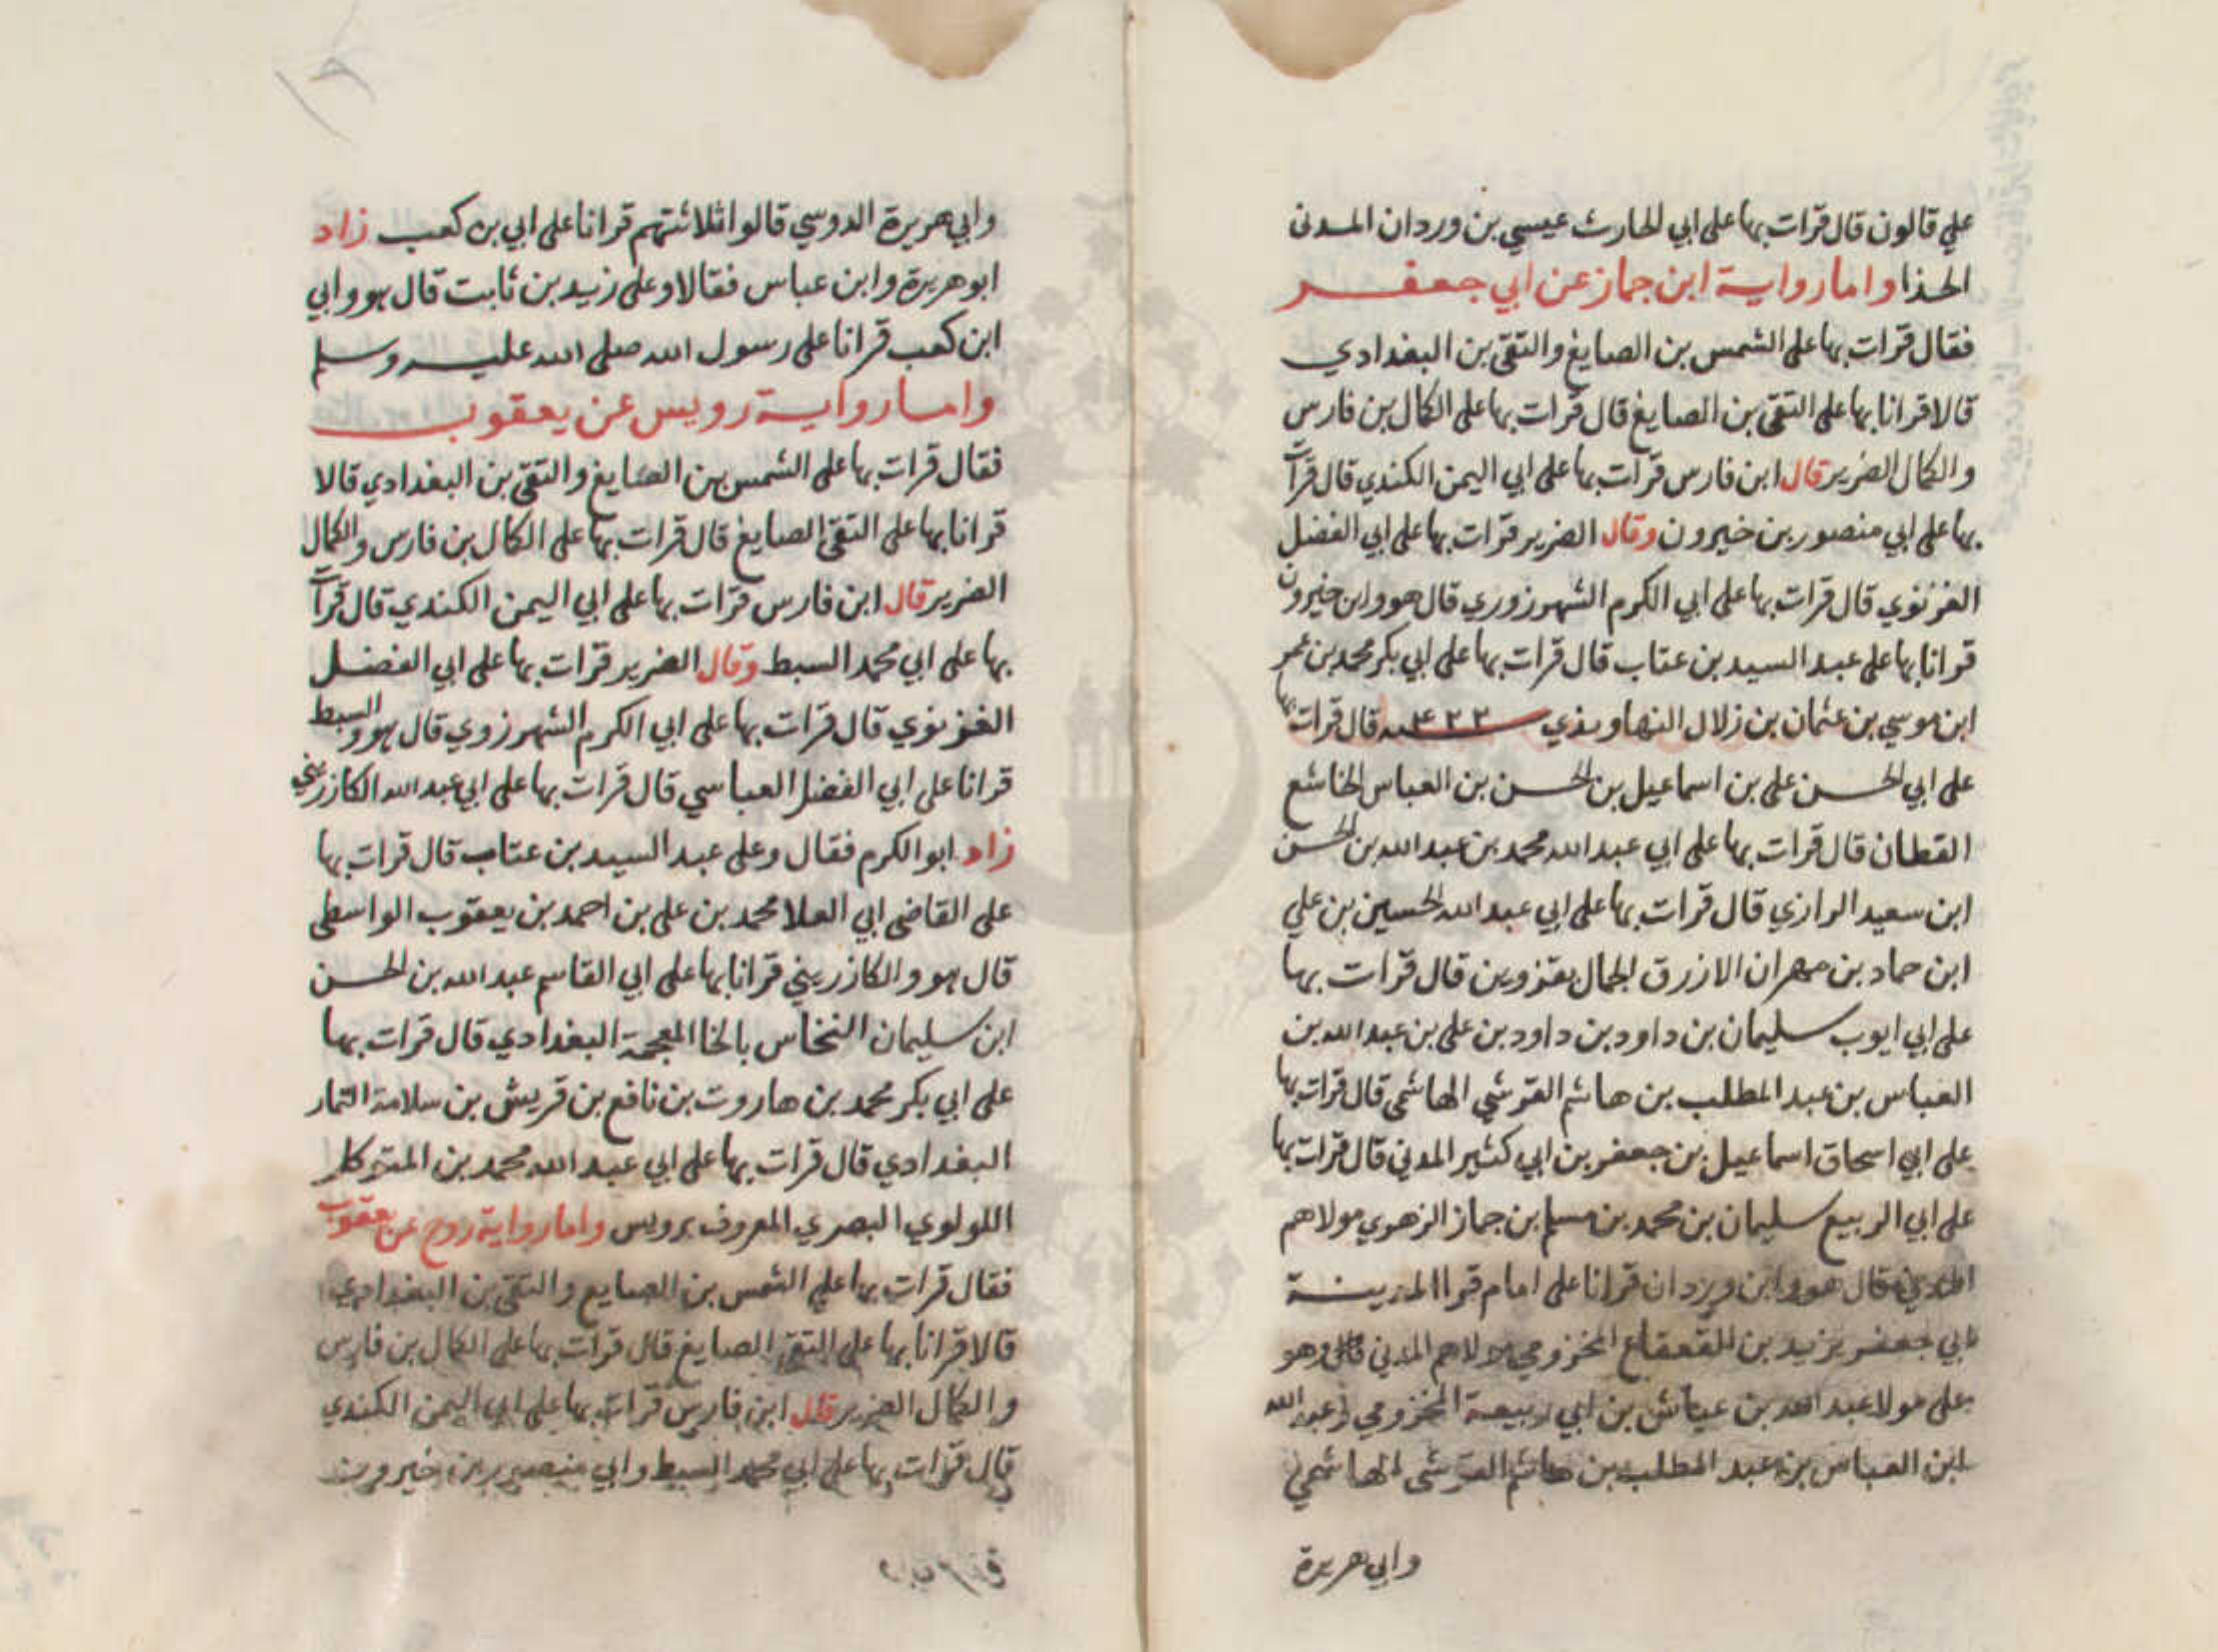 علي قالون قال قرات بها علي ابي الحارث عيسي بن وردان المدنى
الحذا واما رواية ابن جماز عن ابي جعفر
فقال قرات بها على الشمس بن الصايغ والتقى بن البغدادي
قالا قرانا بها على التقى بن الصايغ قال قرات بها على الكمال بن فارس
والكمال الضرير قال ابن فارس قرات بها على ابي اليمن الكندي قال قرات
بها على ابي منصور بن خيرون وقال الضرير قرات بها على ابي الفضل
الغزنوي قال قرات بها على ابي الكرم الشهرزوري قال هو وابن خيرون
قرانا بها على عبد السيد بن عتاب قال قرات بها على ابي بكر محمد بن عمر
ابن موسي بن عثمان بن زلال النهاوندي قال قرات بها
على ابي الحسن على بن اسماعيل بن الحسن بن العباس الخاشع
القطان قال قرات بها على ابي عبد الله محمد بن عبد الله بن الحسن
ابن سعيد الرازي قال قرات بها على ابي عبد الله الحسين بن علي
ابن حماد بن مهران الازرق الجمال بقزوين قال قرات بها
على ابي ايوب سليمان بن داود بن داود بن على بن عبد الله بن
العباس بن عبد المطلب بن هاشم القرشي الهاشمى قال قرات بها
على ابي اسحاق اسماعيل بن جعفر بن ابي كثير المدني قال قرات بها
على ابي الربيع سليمان بن محمد بن مسلم بن جماز الزهري مولاهم
المدني قال هو وابن وردان قرانا على امام قرا المدينة
ابي جعفر يزيد بن القعقاع المخزومي مولاهم المدني وهو
على مولا عبد الله بن عياش بن ابي ربيعة المخزومي وعبد الله
ابن العباس بن عبد المطلب بن هاشم القرشى الهاشمي
وابي هريرة
وابي هريرة الدوسي قالوا ثلاثتهم قرانا على ابي بن كعب زاد
ابو هريرة وابن عباس فقالا وعلى زيد بن ثابت قال هو وابي
ابن كعب قرانا على رسول الله صلى الله عليه وسلم
واما رواية رويس عن يعقوب
فقال قرات بها على الشمس بن الصايغ والتقى بن البغدادي قالا
قرانا بها على التقى الصايغ قال قرات بها على الكمال بن فارس والكمال
الضرير قال ابن فارس قرات بها على ابي اليمن الكندي قال قرات
بها على ابي محمد السبط وقال الضرير قرات بها على ابي الفضل
الغزنوي قال قرات بها على ابي الكرم الشهرزوي قال هو والسبط
قرانا على ابي الفضل العباسي قال قرات بها على ابي عبد الله الكازرينى
زاد ابو الكرم فقال وعلى عبد السيد بن عتاب قال قرات بها
على القاضى ابي العلا محمد بن على بن احمد بن يعقوب الواسطى
قال هو والكازريني قرانا بها على ابي القاسم عبد الله بن الحسن
ابن سليمان النخاس بالخا المعجمة البغدادي قال قرات بها
على ابي بكر محمد بن هاروت بن نافع بن قريش بن سلامة التمار
البغدادي قال قرات بها على ابي عبد الله محمد بن المتوكل
اللولوي البصري المعروف برويس واما رواية روح عن يعقوب
فقال قرات بها على الشمس بن الصايع والتقى بن البغدادي
قالا قرانا بها على التقى الصايغ قال قرات بها على الكمال بن فارس
والكمال الضرير قال ابن فارس قرات بها على ابي اليمن الكندي
قال قرات بها على ابي محمد السبط وابي منصور بن خيرون